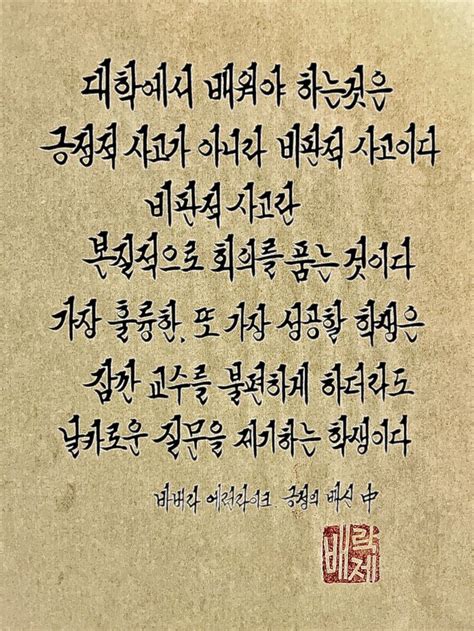 대학에서 배워야 하는것은
긍정적 사고가 아니라 비판적 사고이다
비판적 사고란
본질적으로 회의를 품는 것이다
가장 훌륭한, 또 가장 성공할 학생은
잠깐 교수를 불편하게 하더라도
날카로운 질문을 제기하는 학생이다
바버라 에런라이크 긍정의 배신 中
배락제